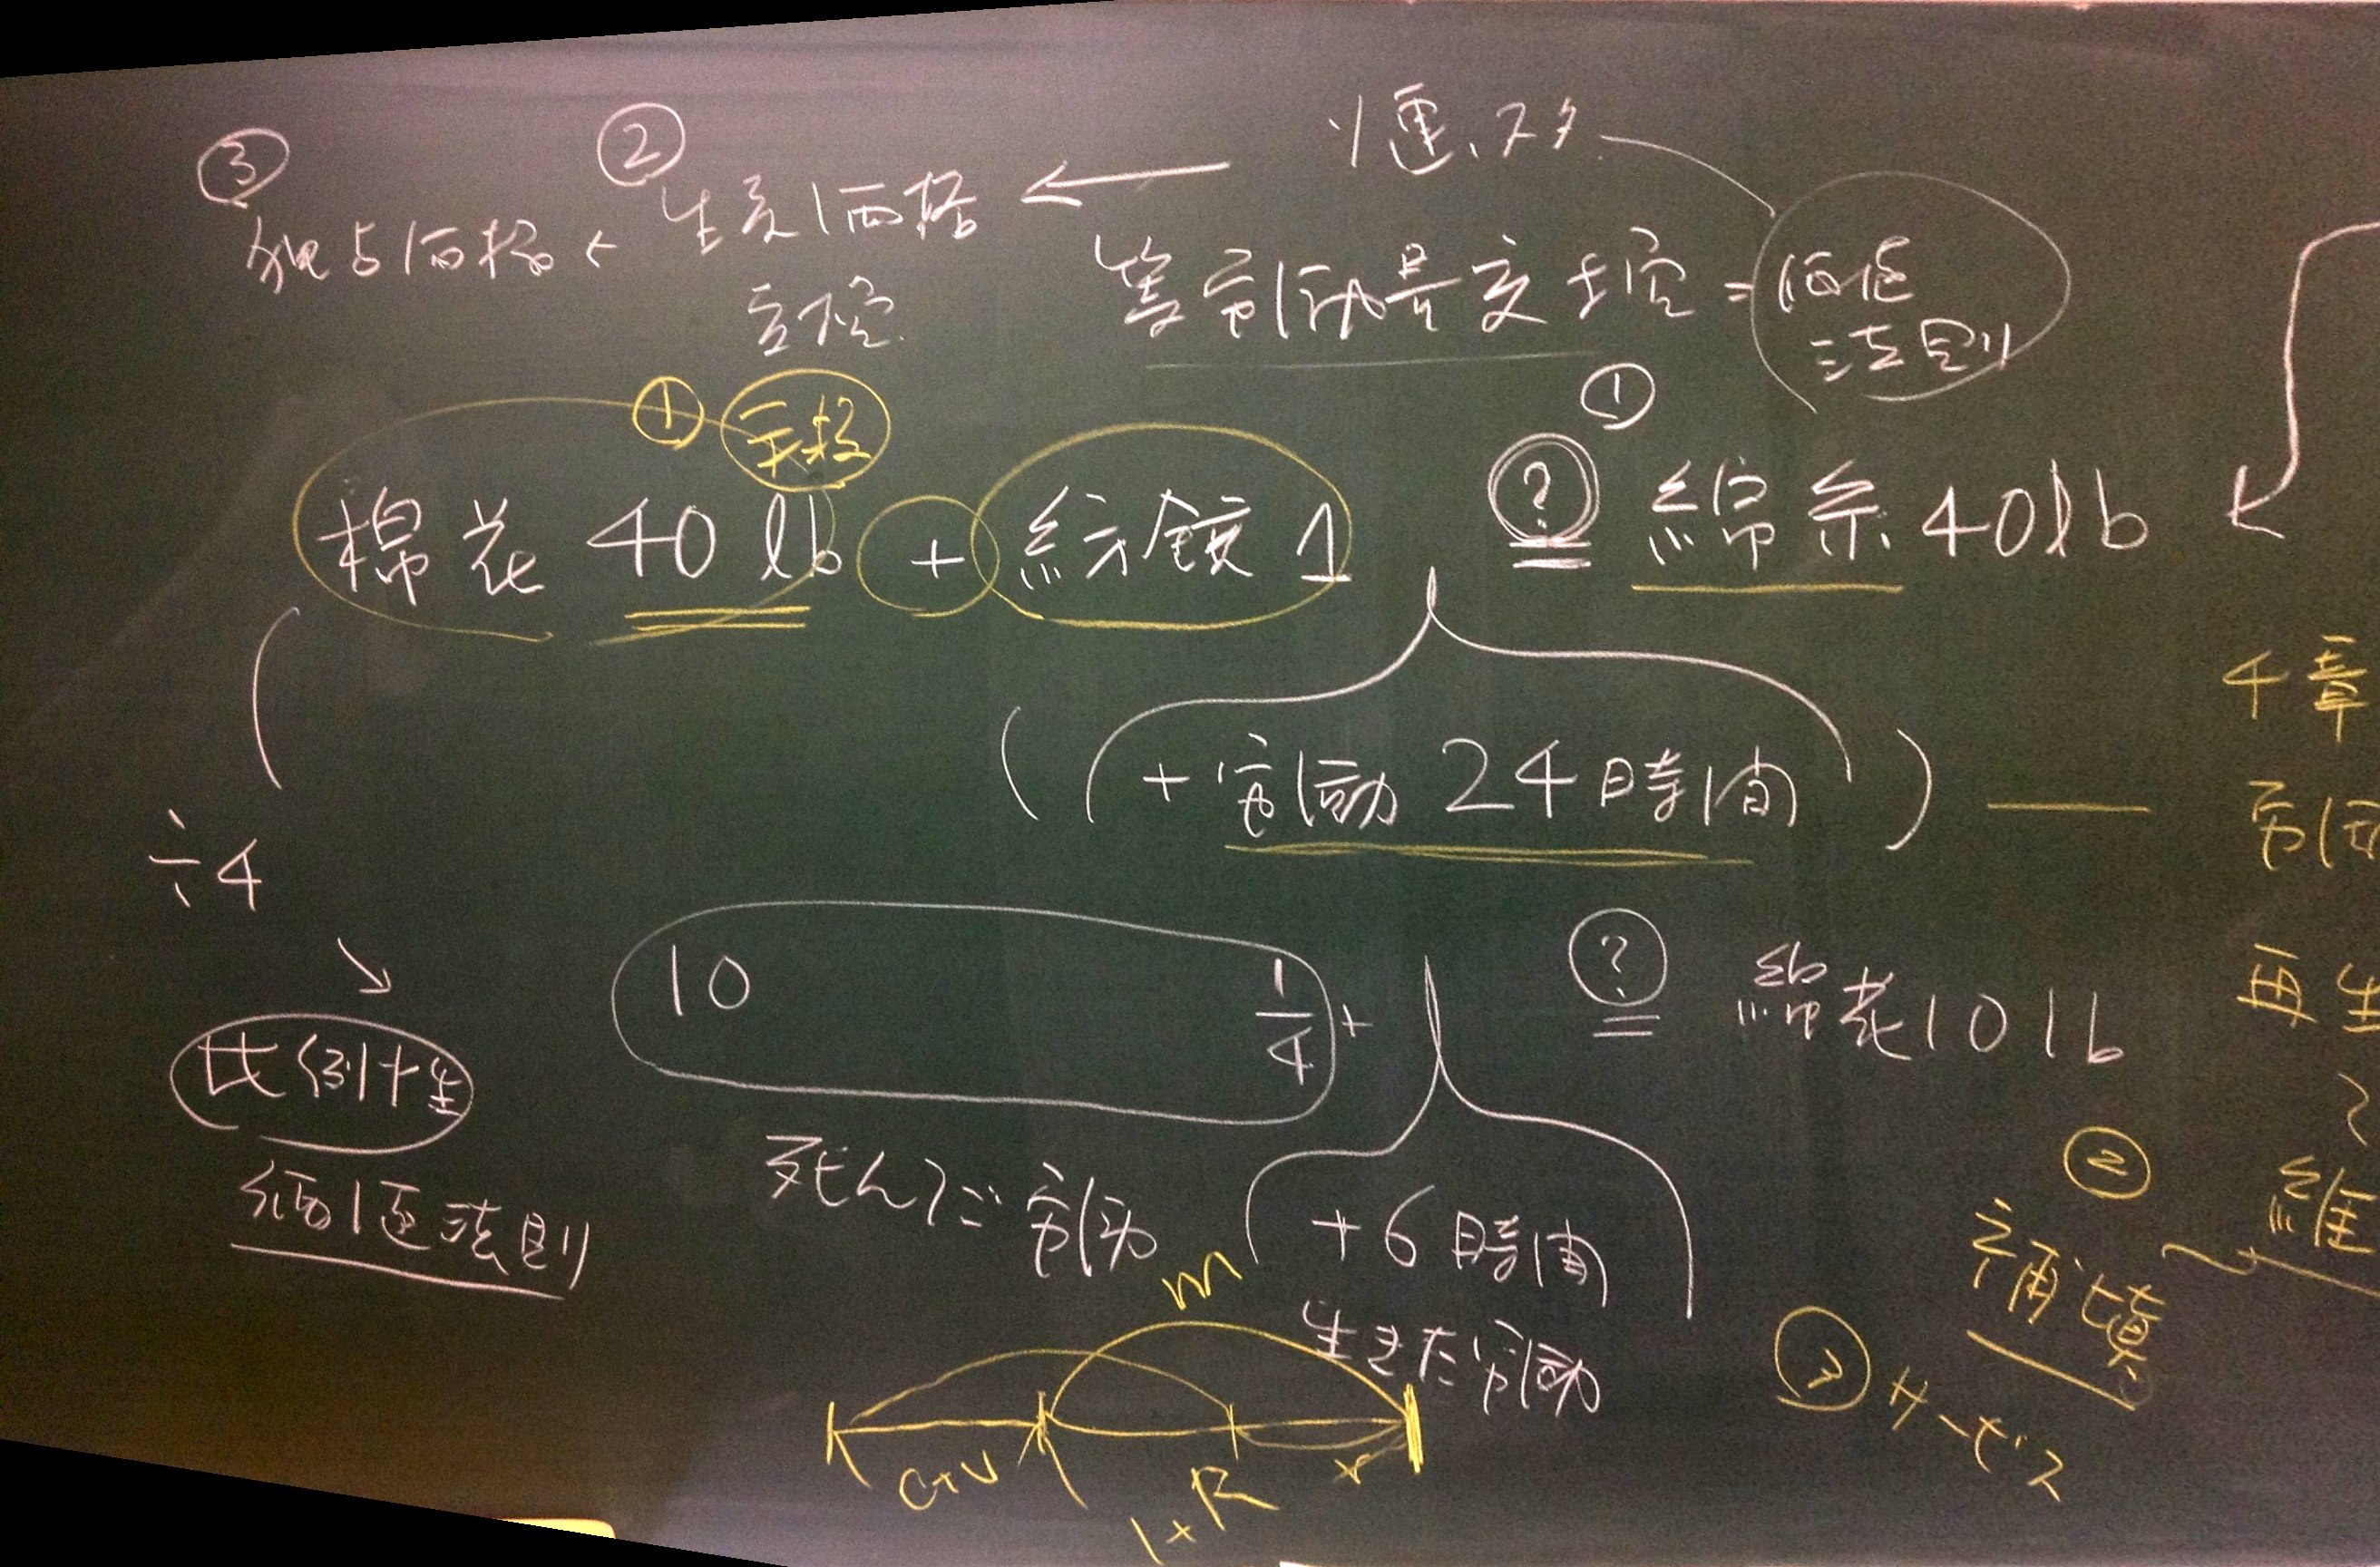 ③ ② ←
独占価格 ← 生産価格
等労働量交換 = 価値法則
① ①
棉花 40 lb + 紡錘 1 ? 綿糸 40lb
4章
( + 労働 24時間 ) —
÷4
再生
10 1/4 + ? 綿花 10 lb
比例性
価値法則
死んだ労働 + 6時間
生きた労働
② 補填
維
③ サービス
m
C+V
R